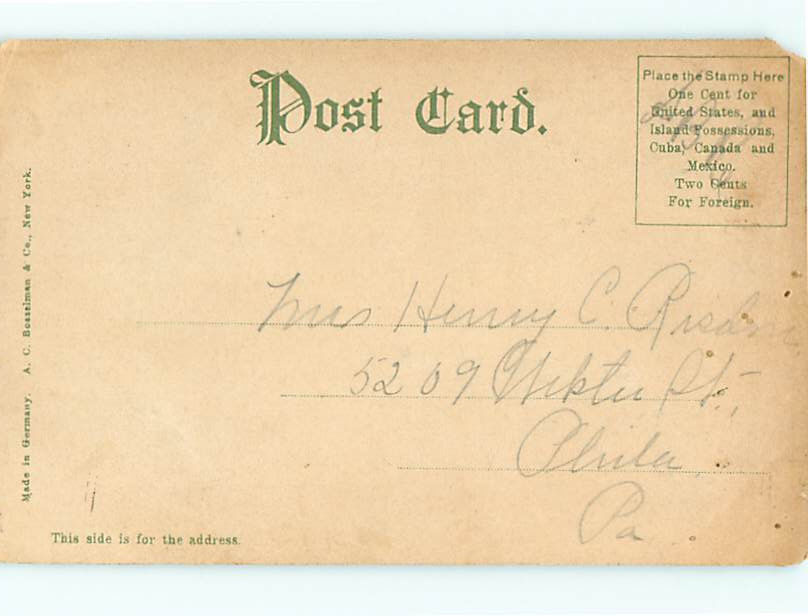 Post Card.
Place the Stamp Here
One Cent for
United States, and
Island Possessions,
Cuba, Canada and
Mexico.
Two Cents
For Foreign.
Mrs Henry C. Risdon
5209 St.,
Phila
Pa.
Made in Germany. A. C. Bosselman & Co., New York.
This side is for the address.